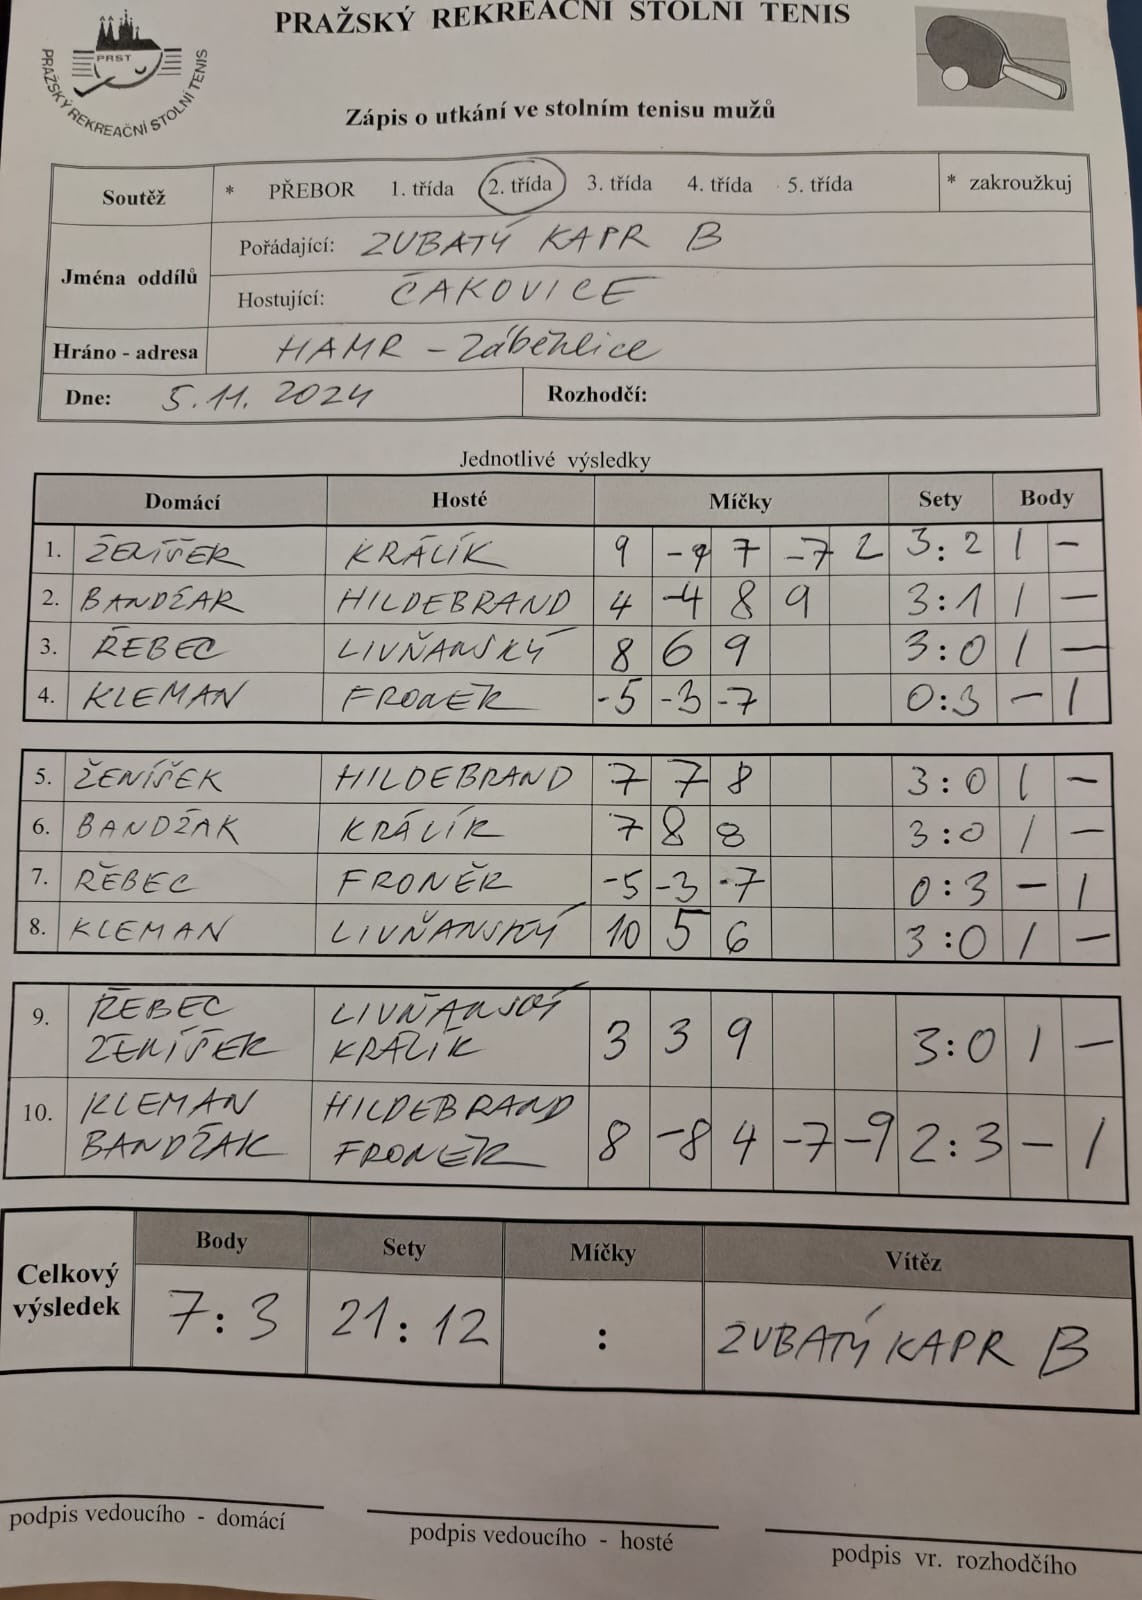 PRAŽSKÝ REKREAČNÍ STOLNÍ TENIS
PRST
PRAŽSKÝ REKREAČNÍ STOLNÍ TENIS
Zápis o utkání ve stolním tenisu mužů
Soutěž * PŘEBOR 1. třída 2. třída 3. třída 4. třída 5. třída * zakroužkuj
Jména oddílů
Pořádající: ZUBATÝ KAPR B
Hostující: ČAKOVICE
Hráno - adresa HAMR - Záběhlice
Dne: 5.11. 2024 Rozhodčí:
Jednotlivé výsledky
Domácí Hosté Míčky Sety Body
1. ŽENÍŠEK KRÁLÍK 9 -9 7 -7 2 3:2 1 -
2. BANDŽAK HILDEBRAND 4 -4 8 9 3:1 1 -
3. ŘEBEC LIVŇANSKÝ 8 6 9 3:0 1 -
4. KLEMAN FRONĚK -5 -3 -7 0:3 - 1
5. ŽENÍŠEK HILDEBRAND 7 7 8 3:0 1 -
6. BANDŽAK KRÁLÍK 7 8 8 3:0 1 -
7. ŘEBEC FRONĚK -5 -3 -7 0:3 - 1
8. KLEMAN LIVŇANSKÝ 10 5 6 3:0 1 -
9. ŘEBEC LIVŇANSKÝ
ŽENÍŠEK KRÁLÍK 3 3 9 3:0 1 -
10. KLEMAN HILDEBRAND
BANDŽAK FRONĚK 8 -8 4 -7 -9 2:3 - 1
Celkový výsledek
Body Sety Míčky Vítěz
7:3 21:12 : ZUBATÝ KAPR B
podpis vedoucího - domácí
podpis vedoucího - hosté
podpis vr. rozhodčího